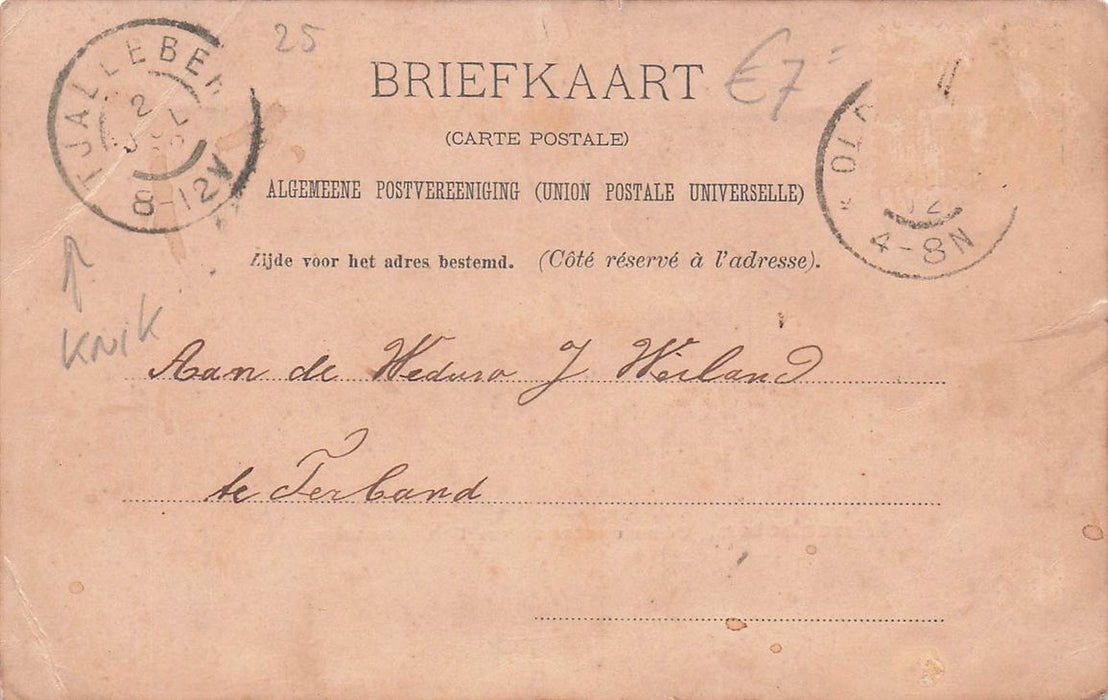 25
BRIEFKAART
€7=
(CARTE POSTALE)
ALGEMEENE POSTVEREENIGING (UNION POSTALE UNIVERSELLE)
Zijde voor het adres bestemd. (Côté réservé à l'adresse).
TJALLEBER
2
8-12V
4-8N
KNIK
Aan de Weduw J Weiland
te Terband